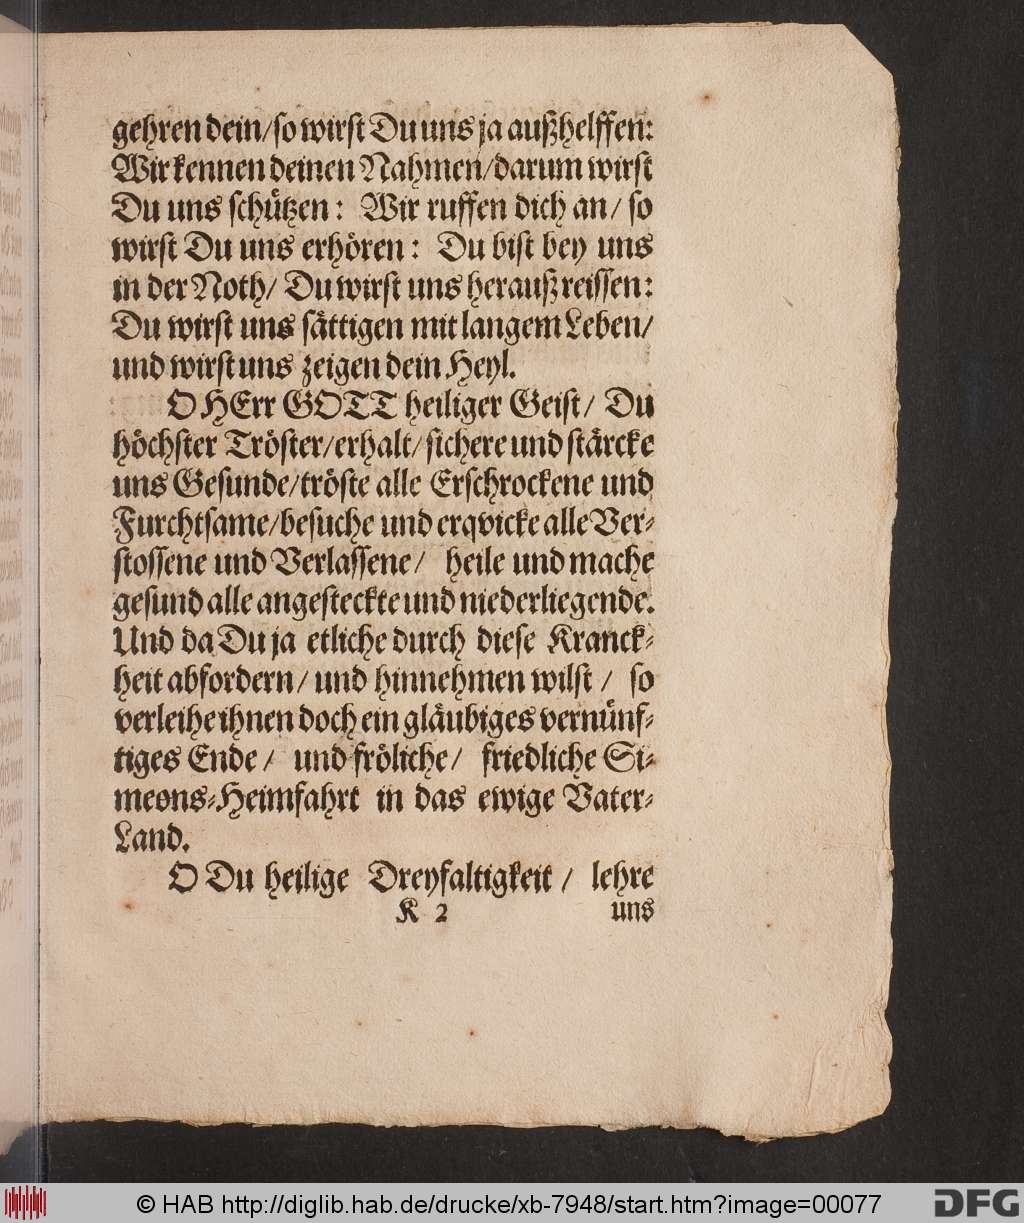 gehren dein/so wirst Du uns ja außhelffen:
Wir kennen deinen Nahmen/darum wirst
Du uns schützen: Wir ruffen dich an/ so
wirst Du uns erhören: Du bist bey uns
in der Noth/ Du wirst uns heraußreissen:
Du wirst uns sättigen mit langem Leben/
und wirst uns zeigen dein Heyl.
O HErr GOTT heiliger Geist/ Du
höchster Tröster/erhalt/sichere und stärcke
uns Gesunde/tröste alle Erschrockene und
Furchtsame/besuche und erqvicke alle Ver-
stossene und Verlassene/ heile und mache
gesund alle angesteckte und niederliegende.
Und da Du ja etliche durch diese Kranck-
heit abfordern/ und hinnehmen wilst/ so
verleihe ihnen doch ein gläubiges vernünf-
tiges Ende/ und fröliche/ friedliche Si-
meons-Heimfahrt in das ewige Vater-
Land.
O Du heilige Dreyfaltigkeit/ lehre
K 2 uns
© HAB http://diglib.hab.de/drucke/xb-7948/start.htm?image=00077
DFG